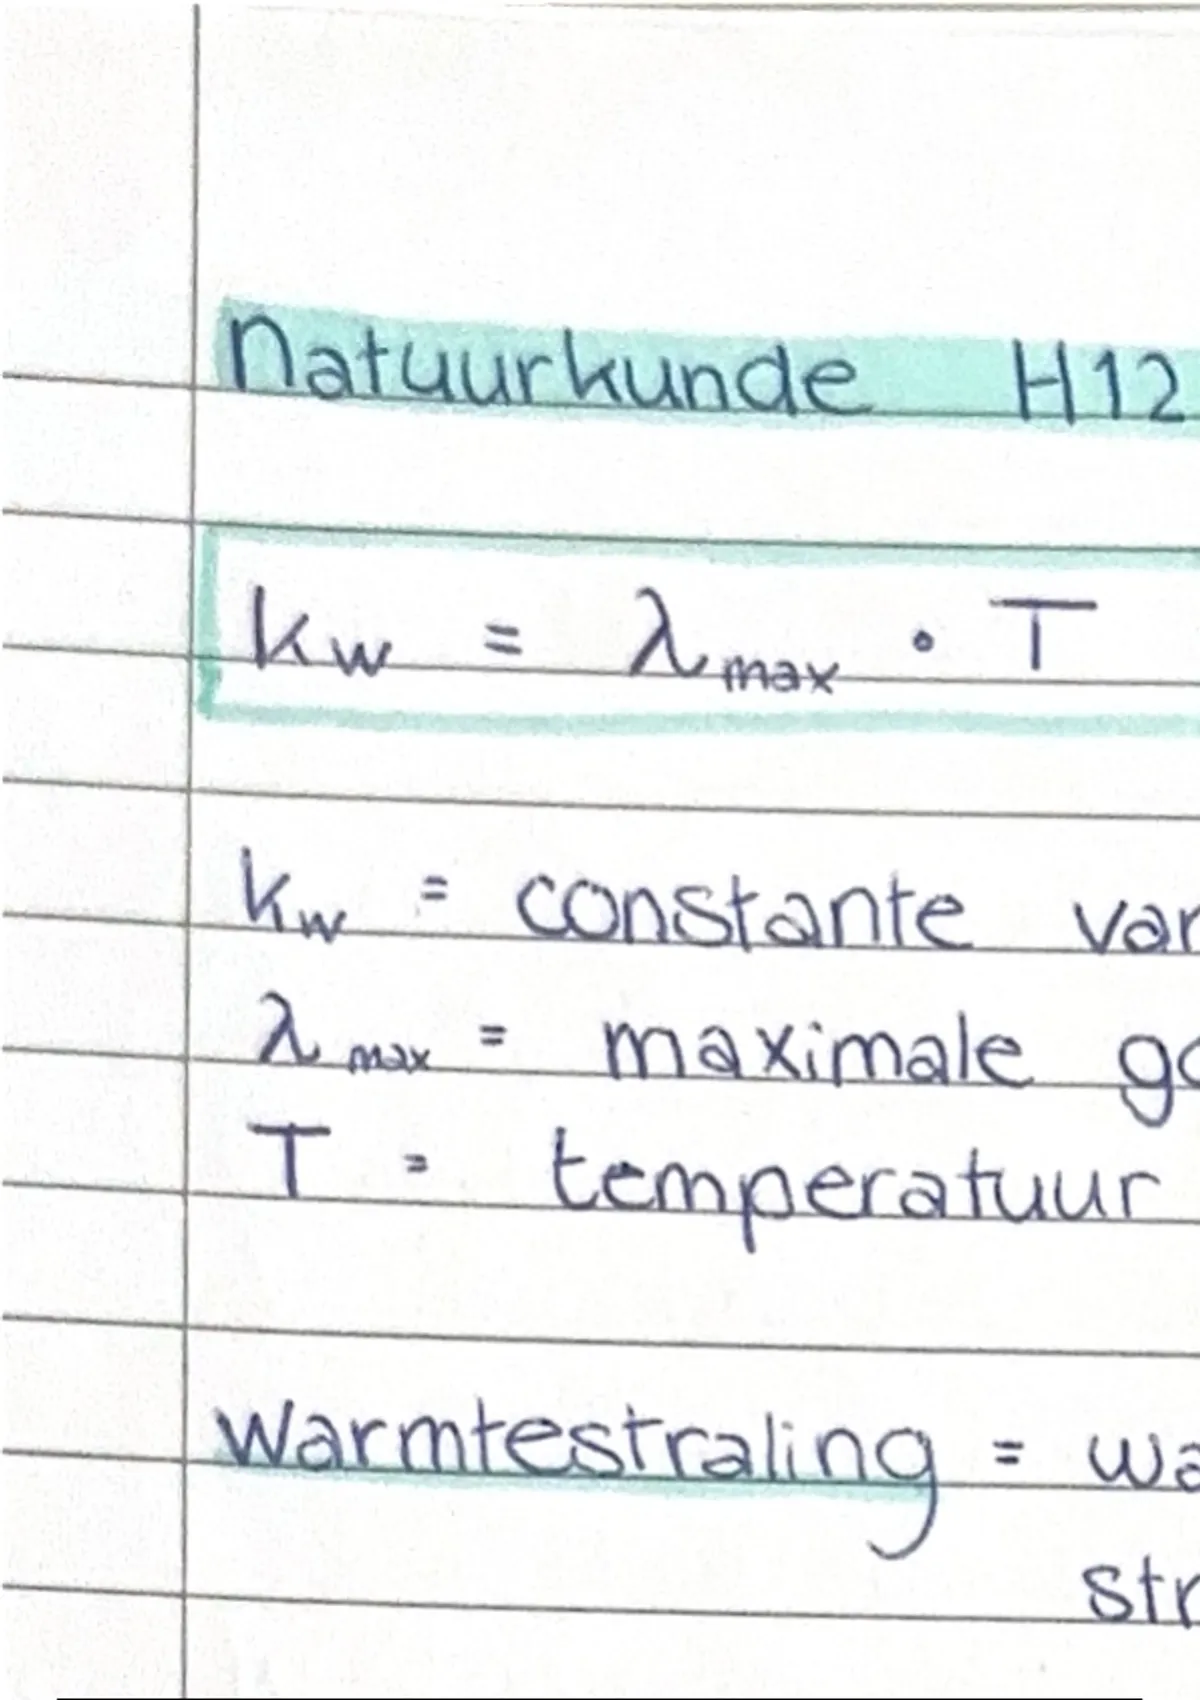 Natuurkunde H12
kw = λmax • T
kw = constante van
λmax = maximale go
T = temperatuur
Warmtestraling = wa
str